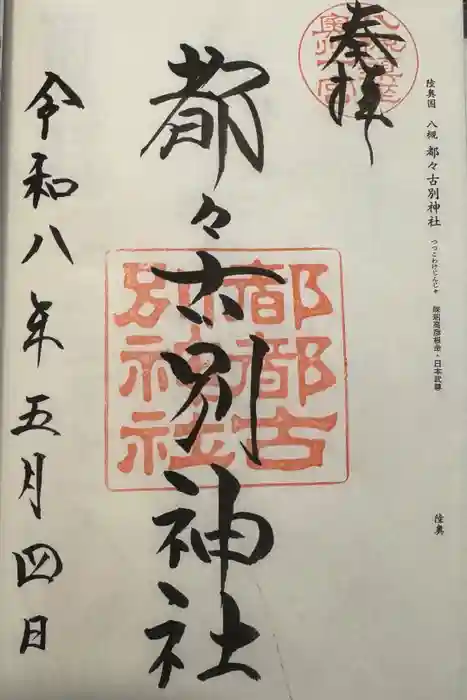 陸奥国 八槻 都々古別神社
つつこわけじんじゃ
味耜高彦根命・日本武尊
陸奥
奉拝
都々古別神社
都都古別神社
令和八年五月四日